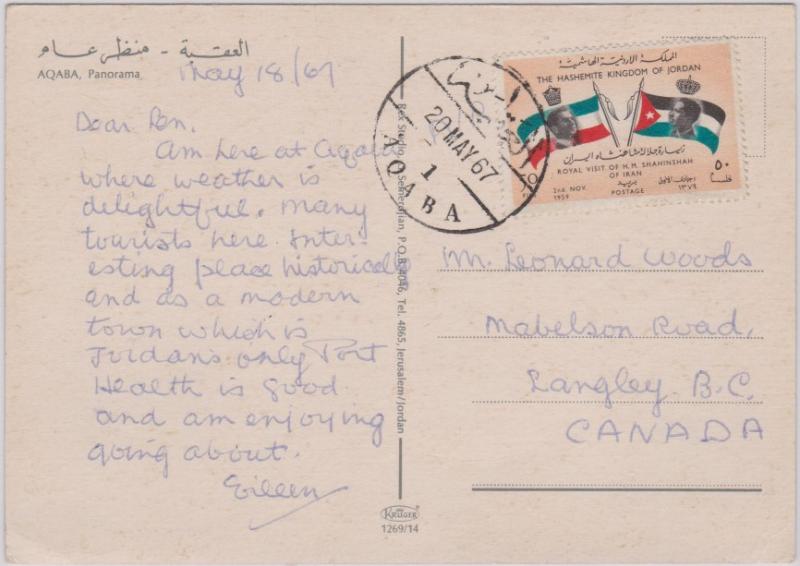 العقبة - منظر عام
AQABA, Panorama
May 18/67
Dear Len.
Am here at Aqaba
where weather is
delightful. Many
tourists here. Inter-
esting place historically
and as a modern
town which is
Jordan's only Port
Health is good
and am enjoying
going about.
Eileen
Rex Studio, Semerdjian, P.O.B. 4046, Tel. 4865, Jerusalem/Jordan
KRÜGER
1269/14
العقبة
20 MAY 67
1
AQABA
المملكة الاردنية الهاشمية
THE HASHEMITE KINGDOM OF JORDAN
زيارة جلالة شاهنشاه ايران
ROYAL VISIT OF H.M. SHAHINSHAH
OF IRAN
2ND. NOV.
1959
بريد
POSTAGE
١٣٧٩
٥٠
فلسا
Mr. Leonard Woods
Mabelson Road,
Langley B.C.
CANADA